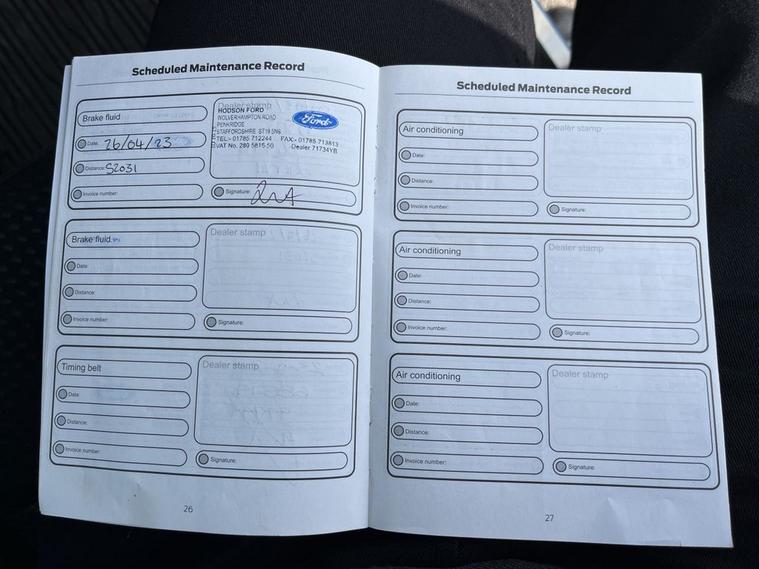 Scheduled Maintenance Record
Brake fluid
Date: 26/04/23
Distance: 52031
Invoice number:
Dealer stamp
HODSON FORD
WOLVERHAMPTON ROAD
PENKRIDGE
STAFFORDSHIRE ST19 5NS
TEL:- 01785 712244 FAX:- 01785 713813
VAT No. 280 5815 50 Dealer 71734YB
Ford
Signature:
Brake fluid
Date:
Distance:
Invoice number:
Dealer stamp
Signature:
Timing belt
Date:
Distance:
Invoice number:
Dealer stamp
Signature:
26
Scheduled Maintenance Record
Air conditioning
Date:
Distance:
Invoice number:
Dealer stamp
Signature:
Air conditioning
Date:
Distance:
Invoice number:
Dealer stamp
Signature:
Air conditioning
Date:
Distance:
Invoice number:
Dealer stamp
Signature:
27